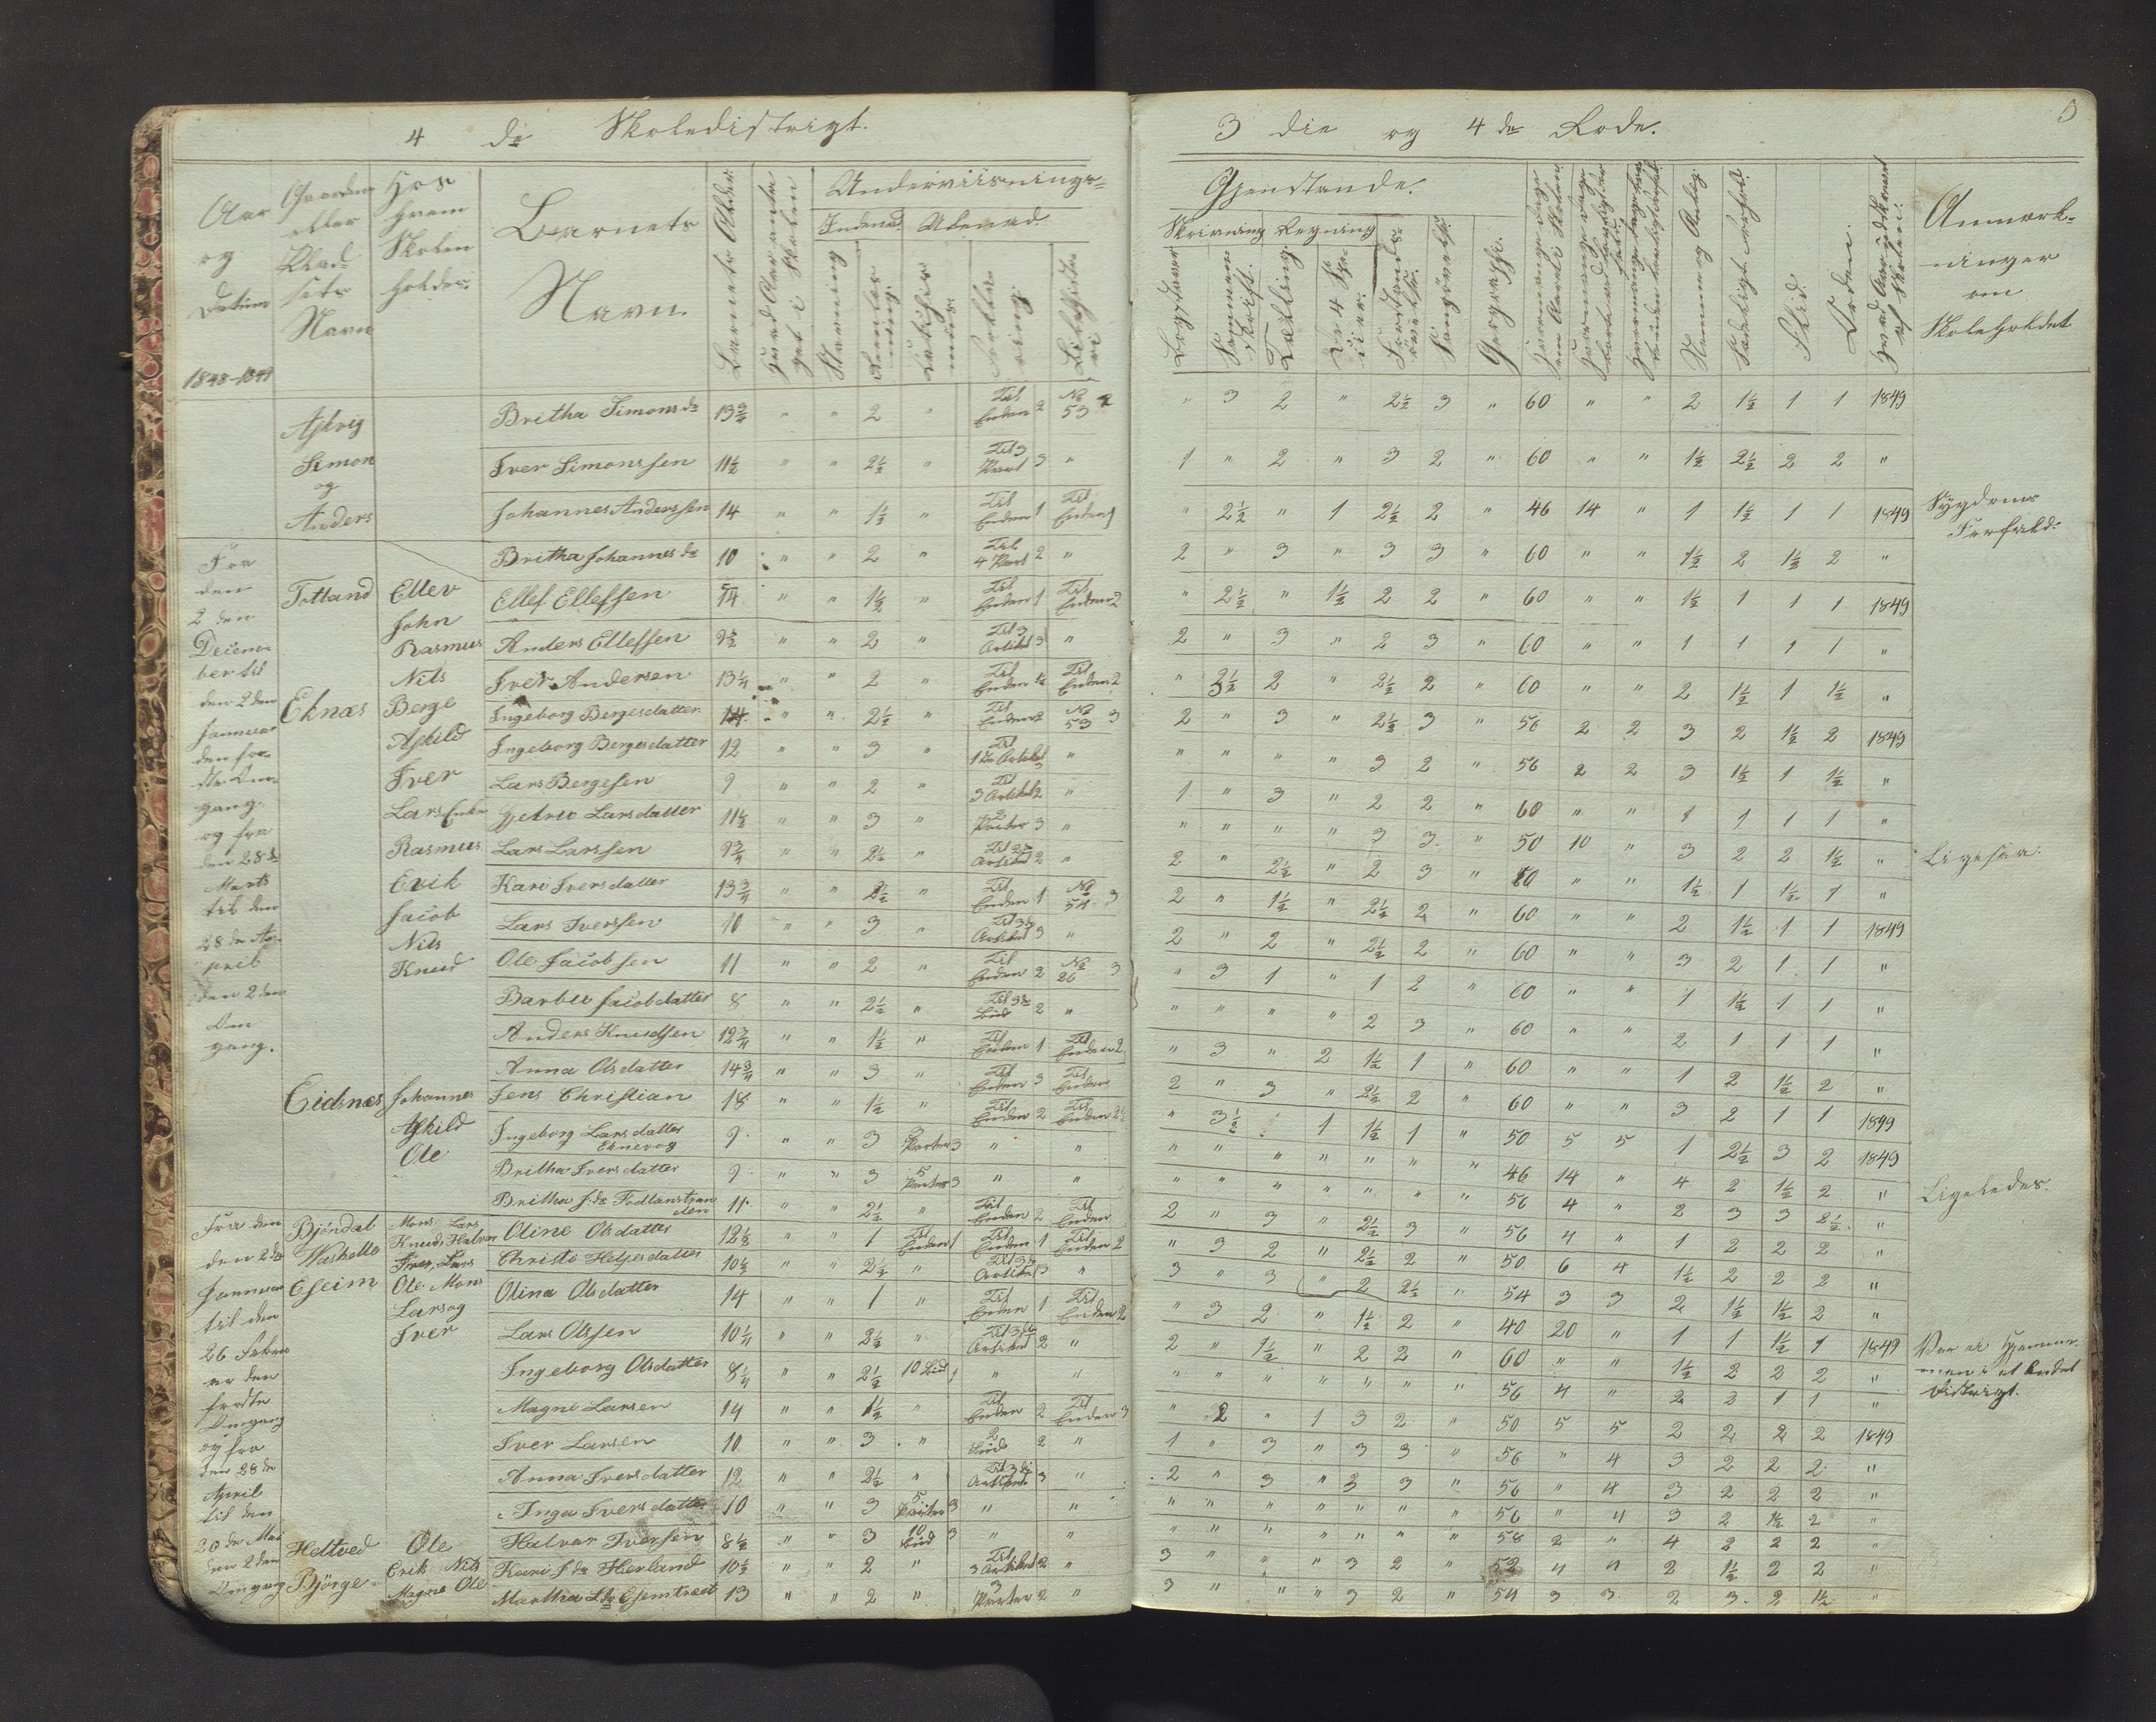 4 de Skoledistrigt.
3 die og 4 de Rode.
Aar og Datum 1848-1849
Gaardens eller Pladsets Navn
Hos hvem Skolen holdes.
Barnets Navn.
Barnets Alder
Underviisnings-
Indenad. Udenad.
Stavning
Gjenstande.
Skrivning Regning
Bogstaver
Sammenskrift.
Tælling.
De 4 Spesier.
Geographi.
Nemme og Anlæg.
Sædeligt Forhold.
Flid.
Orden.
Anmærkninger om Skoleholdet
Askvig Simon og Anders
Britha Simonsdr 13 3/4 " " 2 " Til Enden 2 No 53 2 " 3 2 " 2 1/2 3 " 60 " " 2 1 1/2 1 1 1849
Iver Simonssen 11 1/2 " " 2 1/2 " Til 3 Part 3 " 1 " 2 " 3 2 " 60 " " 1 1/2 2 1/2 2 2 "
Johannes Anderssen 14 " " 1 1/2 " Til Enden 1 Til Enden 1 " 2 1/2 " 1 2 1/2 2 " 46 14 " 1 1 1/2 1 1 1849 Sygdoms Forfald.
Fra den 2 den December til den 2 den Januar den første Omgang. og fra den 28 de Marts til den 28 de April den 2 den Omgang.
Britha Johannesdr 10 " " 2 " Til 4 Part 2 " 2 " 3 " 3 3 " 60 " " 1 1/2 2 1 1/2 2 "
Totland Ellev
Ellef Ellefsen 14 " " 1 1/2 " Til Enden 1 Til Enden 2 " 2 1/2 " 1 1/2 2 2 " 60 " " 1 1/2 1 1 1 1849
John
Rasmus
Anders Ellefsen 9 1/2 " " 2 " Til 3 Artikel 3 " 2 " 3 " 2 3 " 60 " " 1 1 1 1 "
Nils
Iver Andersen 13 1/4 " " 2 " Til Enden 1 1/2 Til Enden 2 " 3 1/2 2 " 2 1/2 2 " 60 " " 2 1 1/2 1 1 1/2 "
Eknæs Berge
Ingeborg Bergesdatter 14 " " 2 1/2 " Til Enden 2 No 53 3 2 " 3 " 2 1/2 3 " 56 2 2 3 2 1 1/2 2 1849
Askild
Ingeborg Bergesdatter 12 " " 3 " Til 1 Artikel " " " " " 3 2 " 56 2 2 3 1 1/2 1 1 1/2 "
Iver
Lars Bergesen 9 " " 2 " Til 3 Artikel 2 " 1 " 3 " 2 2 " 60 " " 1 1 1 1 "
Lars Enke
Gjetrue Larsdatter 11 1/2 " " 3 " 2 Parter 3 " " " " " 3 3 " 50 10 " 3 2 2 1 1/2 " Ligesaa.
Rasmus
Lars Larssen 9 3/4 " " 2 1/2 " Til 2 Artikel 2 " 2 " 2 1/2 " 2 3 " 60 " " 1 1/2 1 1 1/2 1 "
Erik
Kari Iversdatter 13 3/4 " " 2 1/2 " Til Enden 1 No 54 3 2 " 1 1/2 " 2 1/2 2 " 60 " " 2 1 1/2 1 1 1849
Jacob
Lars Iverssen 10 " " 3 " Til 3 Artikel 3 " 2 " 2 " 2 1/2 2 " 60 " " 3 2 1 1 "
Nils
Knud
Ole Jacobsen 11 " " 2 " Til Enden 2 No 26 3 " 3 1 " 1 2 " 60 " " 1 1 1/2 1 1 "
Barbu Jacobdatter 8 " " 2 1/2 " Til 9 Bud 2 " " " " " 2 3 " 60 " " 2 1 1 1 "
Anders Knudsen 12 3/4 " " 1 1/2 " Til Enden 1 Til Enden 2 " 3 " 2 1 1/2 1 " 60 " " 1 2 1 1/2 2 "
Anna Olsdatter 14 3/4 " " 3 " Til Enden 3 Til Enden 2 " 3 " 2 1/2 2 " 60 " " 3 2 1 1 1849
Eidsnæs Johannes
Jens Christian 18 " " 1 1/2 " Til Enden 2 Til Enden 2 1/2 " 3 1/2 1 1 1/2 1 " 50 5 5 1 2 1/2 3 2 1849
Askild
Ingeborg Larsdatter Eknevog 9 " " 3 Parter 3 " " " " " " " " " 46 14 " 4 2 1 1/2 2 " Ligeledes.
Ole
Britha Iversdatter 9 " " 3 5 Parter 3 " " " " " " " " " 56 4 " 2 3 3 2 1/2 "
Britha Jdr Totlanstranden 11 " " 2 1/2 " Til Enden 2 Til Enden 2 " 3 " 2 1/2 3 " 56 4 " 1 2 2 2 "
Fra den 2 den Januar til den 26 Februar den første Omgang og fra den 28 de April til den 20 de Mai den 2 den Omgang
Bjöndal Mons Lars
Knud Halvor
Oline Olsdatter 12 1/2 " " 1 Til Enden 1 Til Enden 1 Til Enden 2 " 3 2 " 2 1/2 2 " 50 6 4 1 1/2 2 2 2 "
Iver Lars
Christi Heljesdatter 10 1/2 " " 2 1/2 " Til 3 Artikel 3 " 3 " 3 " 2 2 1/2 " 54 3 3 2 1 1/2 1 1/2 2 "
Eseim Ole Mons
Olina Olsdatter 14 " " 1 " Til Enden 1 Til Enden 2 " 3 2 " 1 1/2 2 " 40 20 " 1 1 1 1/2 1 1849
Var ei hjemme- men i et Andet Distrigt.
Lars og
Iver
Lars Olssen 10 1/4 " " 2 1/2 " Til 3 Artikel 2 " 2 " 1 1/2 " 2 2 " 60 " " 1 1/2 2 2 2 "
Ingeborg Olsdatter 8 1/4 " " 2 1/2 10 Bud 1 " " " " " " " " " 56 4 " 2 2 1 1 "
Magne Larsen 14 " " 1 1/2 " Til Enden 2 Til Enden 3 " 2 " 1 3 2 " 50 5 5 2 2 2 2 1849
Iver Larsen 10 " " 3 " 2 Bud 2 " 1 " 3 " 3 3 " 56 " 4 3 2 2 2 "
Anna Iversdatter 12 " " 2 1/2 " Til 3 Artikel 3 " 2 " 3 " 3 3 " 56 " 4 3 2 2 2 "
Inga Iversdatter 10 " " 3 5 Parter 3 " " " " " " " " " 56 " 4 3 2 1 1/2 2 "
Hettved Ole
Halvor Iversen 8 1/2 " " 3 10 Bud 3 " " " " " " " " " 58 2 " 4 2 2 2 "
Erik Nils
Kari Jdr Herland 10 1/2 " " 2 " Til 3 Artikel 2 " 3 " " " 3 2 " 52 4 4 2 1 1/2 2 2 "
Bjørge Magne Ole
Martha Esemtræet 13 " " 2 " 3 Parter 2 " 3 " " " 3 2 " 54 3 3 2 3 2 1 1/2 "